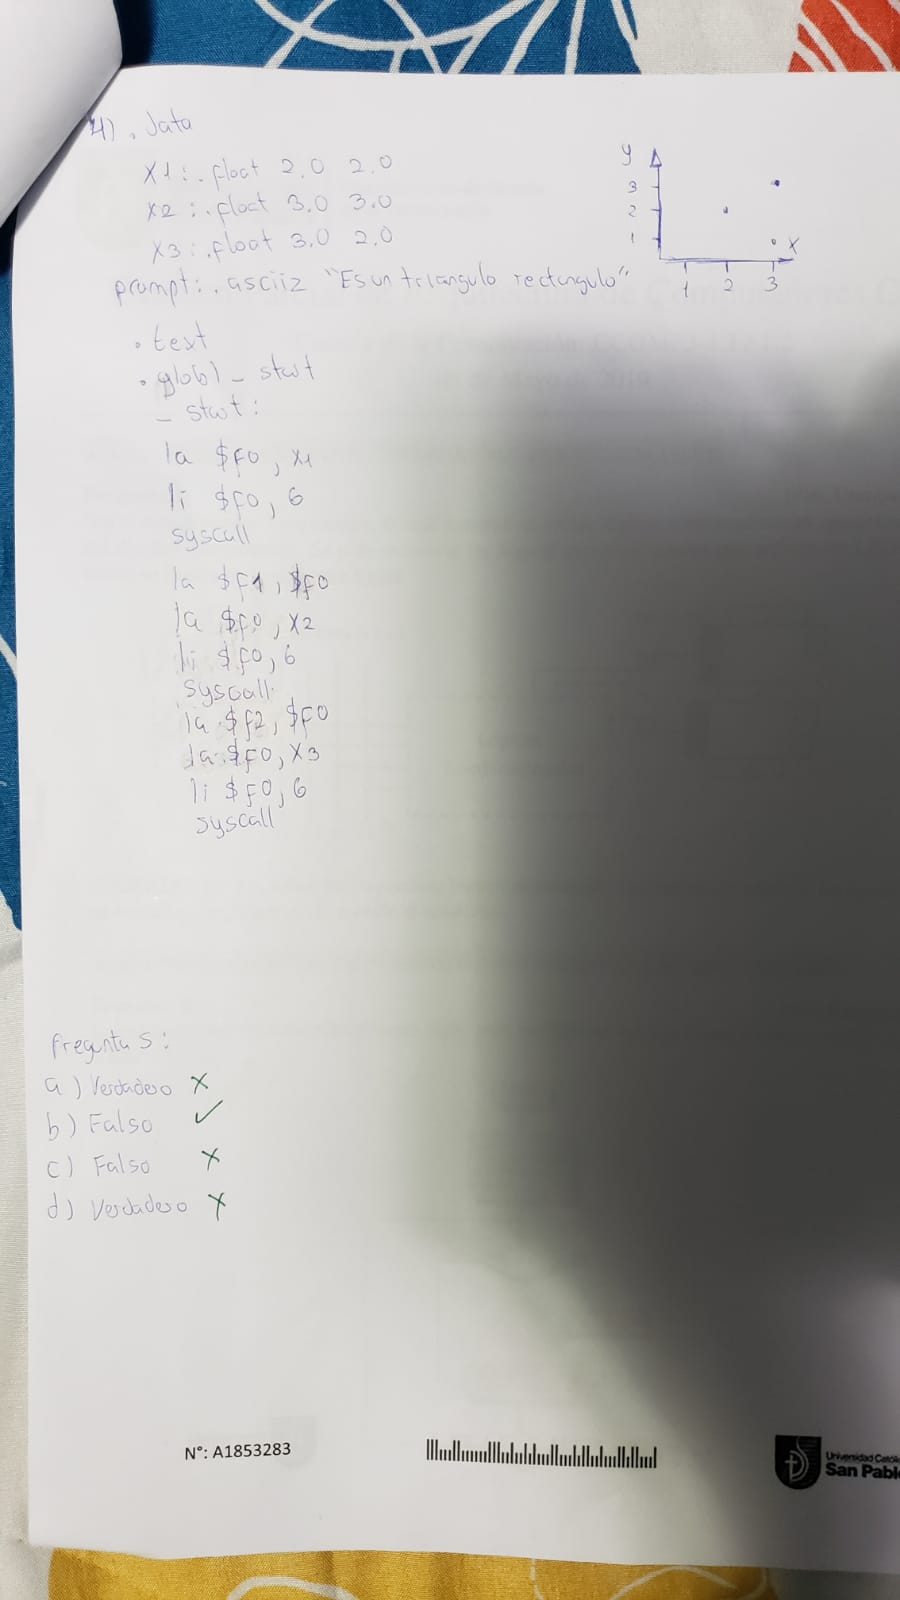 4) . Data
X1 : . float 2.0 2.0
X2 : . float 3.0 3.0
X3 : . float 3.0 2.0
prompt: . asciiz "Es un triangulo rectangulo"
y
3
2
1
x
1 2 3
. text
. globl _ start
_ start :
la $f0, X1
li $f0, 6
syscall
la $f1, $f0
la $f0, X2
li $f0, 6
syscall
la $f2, $f0
la $f0, X3
li $f0, 6
syscall
Pregunta 5 :
a) Verdadero X
b) Falso ✓
c) Falso X
d) Verdadero X
N°: A1853283
Universidad Católi
San Pabl